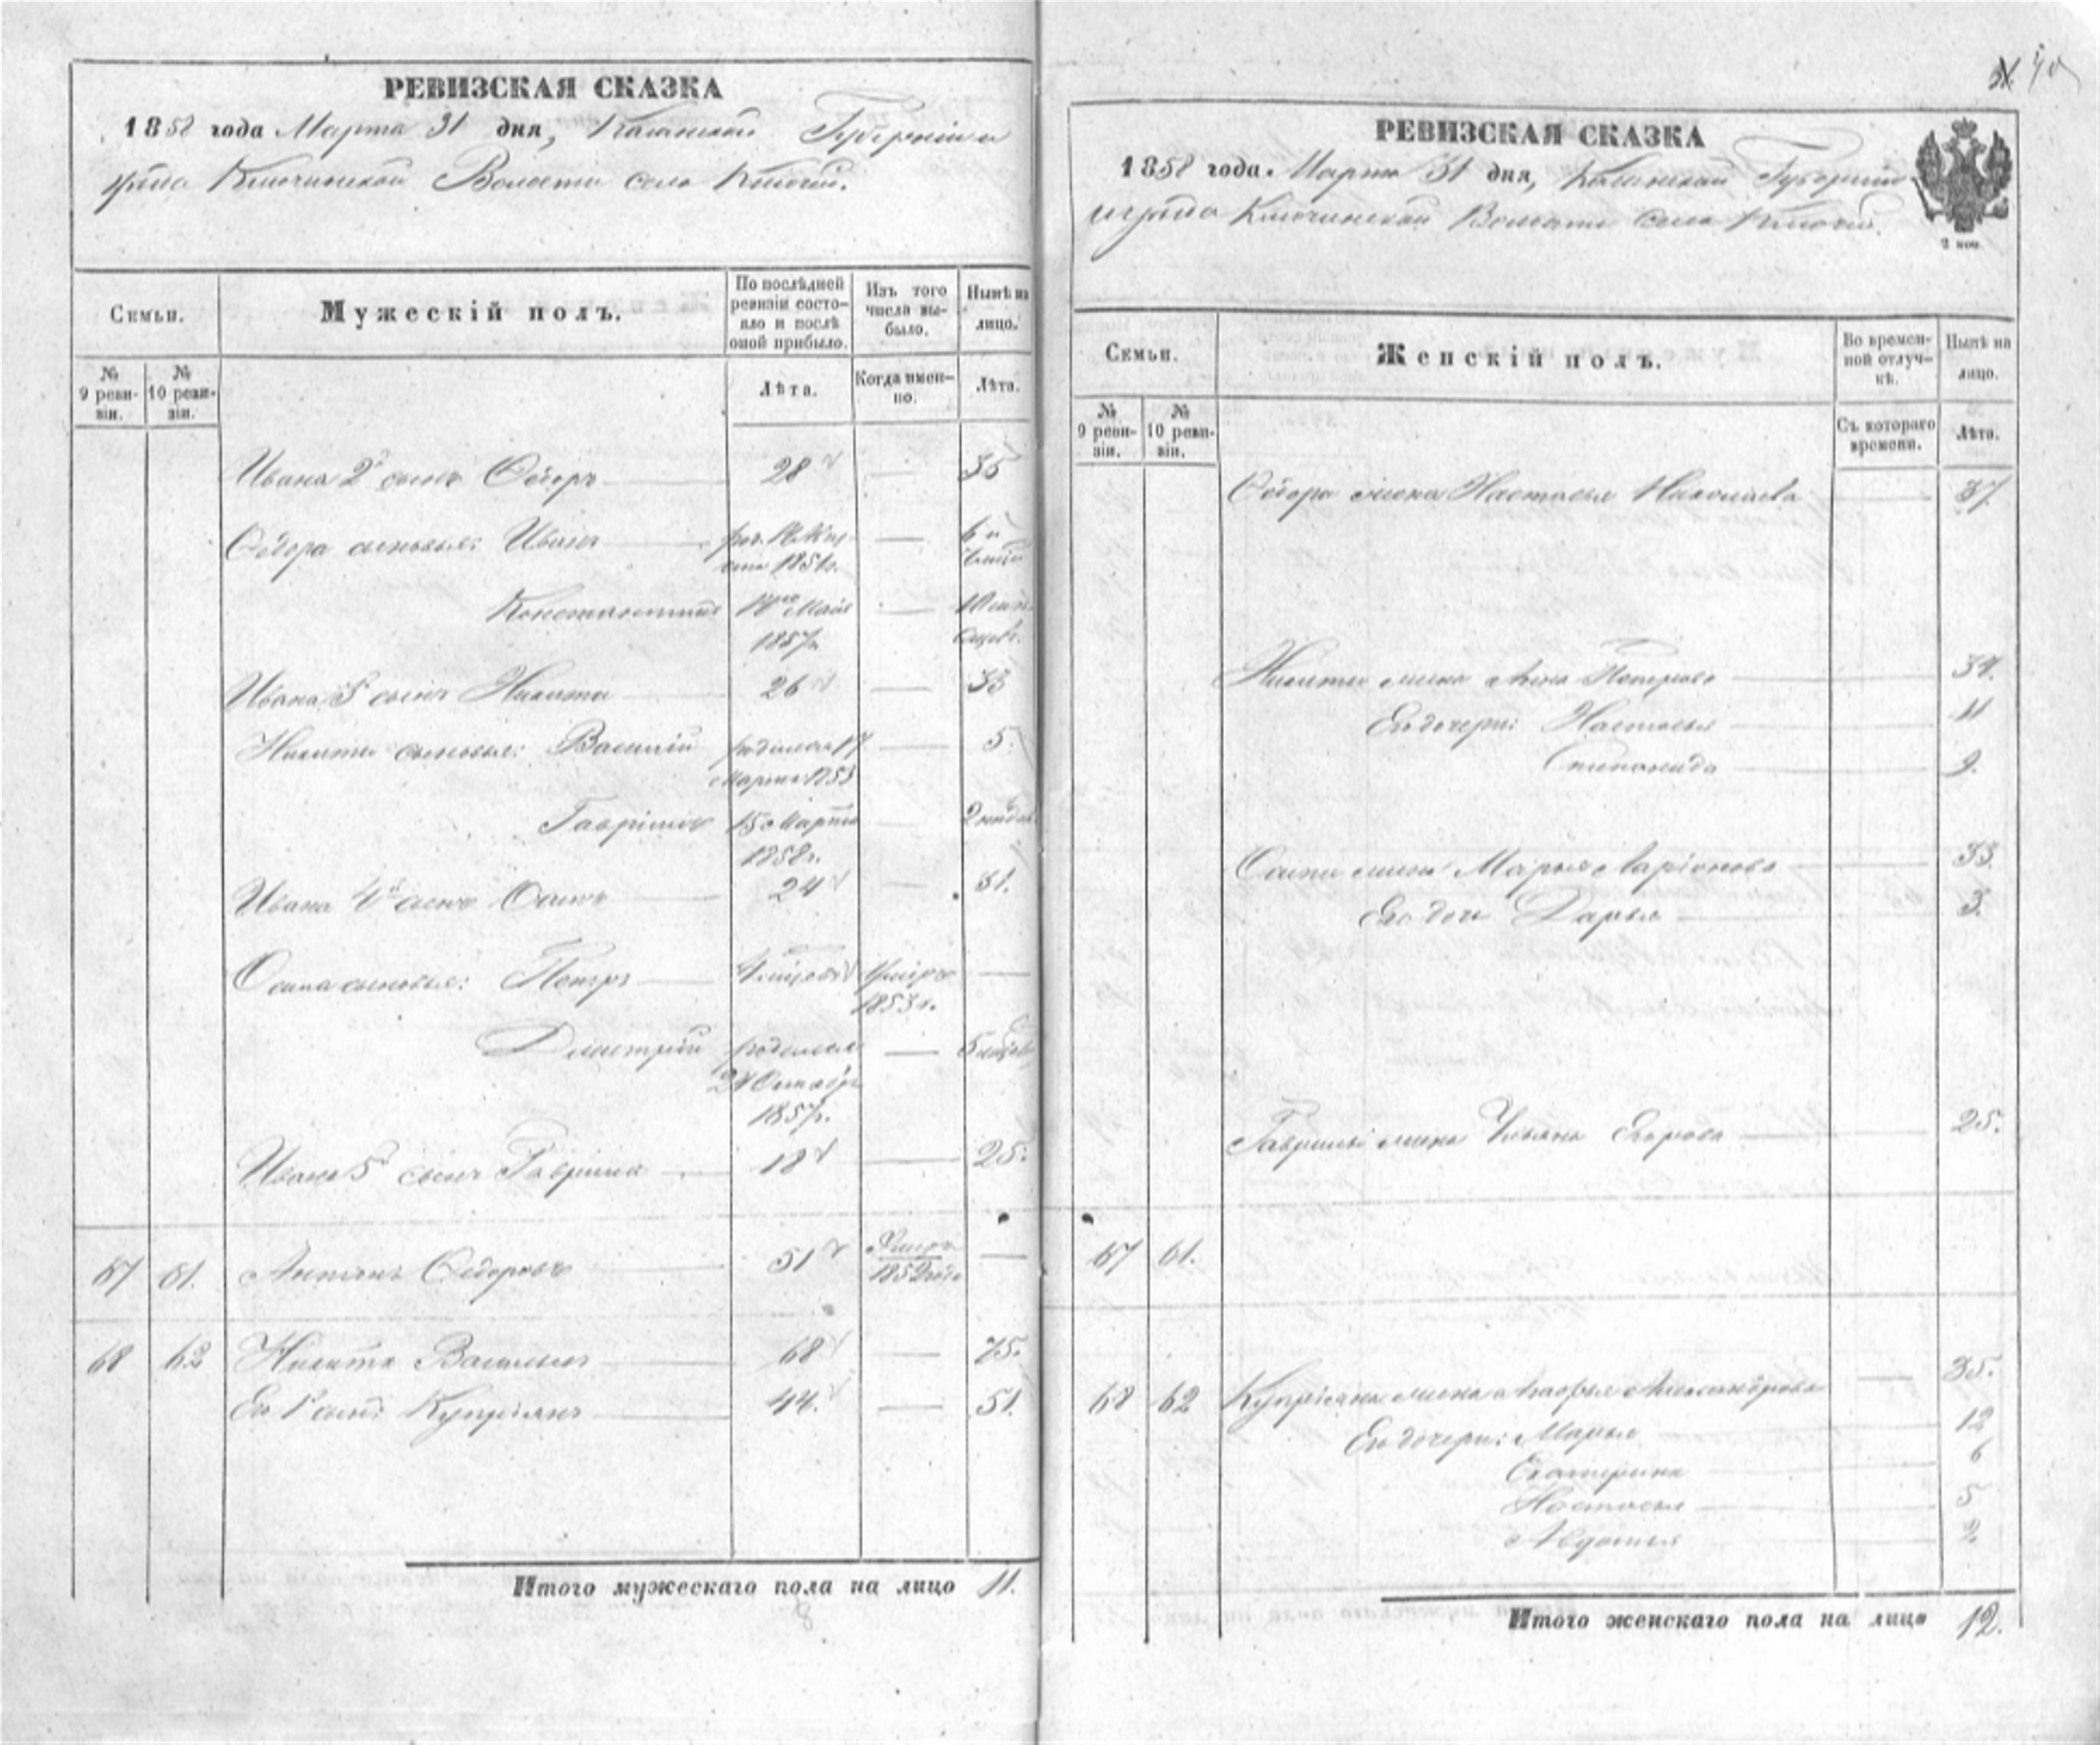 РЕВИЗСКАЯ СКАЗКА
1858 года Марта 31 дня, Губерніи и
уѣзда Ключинской Волости село Ключи.
Семьи.
Мужескій полъ.
По послѣдней ревизіи состояло и послѣ оной прибыло.
Изъ того числа выбыло.
Нынѣ на лицо.
№ 9 ревизіи.
№ 10 ревизіи.
Лѣта.
Когда именно.
Лѣта.
Ивана 2й сынъ Ѳедоръ 28 — 35
Ѳедора сыновья: Иванъ 1851г. — 6 и
Константинъ Мая 1857г. — 10
Ивана 3й сынъ Никита 26 — 33
Никиты сыновья: Василий родился 17 Марта 1853 — 5.
Гаврило 15 Марта 1858г. — 2
Ивана 4й сынъ Осипъ 24 — 31.
Осипа сыновья: Петръ умеръ 1853г. —
Дмитрий родился Октября 1857г. — 5
Ивана 5й сынъ Гаврила 18 — 25.
67 61. Антонъ Ѳедоровъ 51 1852 года —
68 62 Никита Васильевъ 68 — 75.
Его 1й сынъ Купріянъ 44. — 51.
Итого мужескаго пола на лицо 11.
8
40
РЕВИЗСКАЯ СКАЗКА
1858 года. Марта 31 дня, Губерніи
и уѣзда Ключинской Волости село Ключи.
2 коп
Семьи.
Женскій полъ.
Во временной отлучкѣ.
Нынѣ на лицо.
№ 9 ревизіи.
№ 10 ревизіи.
Съ котораго времени.
Лѣта.
Ѳедора жена Настасья Николаева — 37.
Никиты жена Анна Петрова — 34.
Его дочери: Настасья — 11
Степанида — 9.
Осипа жена Марья Ларіонова — 33.
Его дочь Дарья — 3.
Гаврилы жена Ульяна Егорова — 25.
67 61.
68 62 Купріяна жена Александрова — 35.
Его дочери: Марья 12
Екатерина 6
Настасья 5
Авдотья 2
Итого женскаго пола на лицо 12.